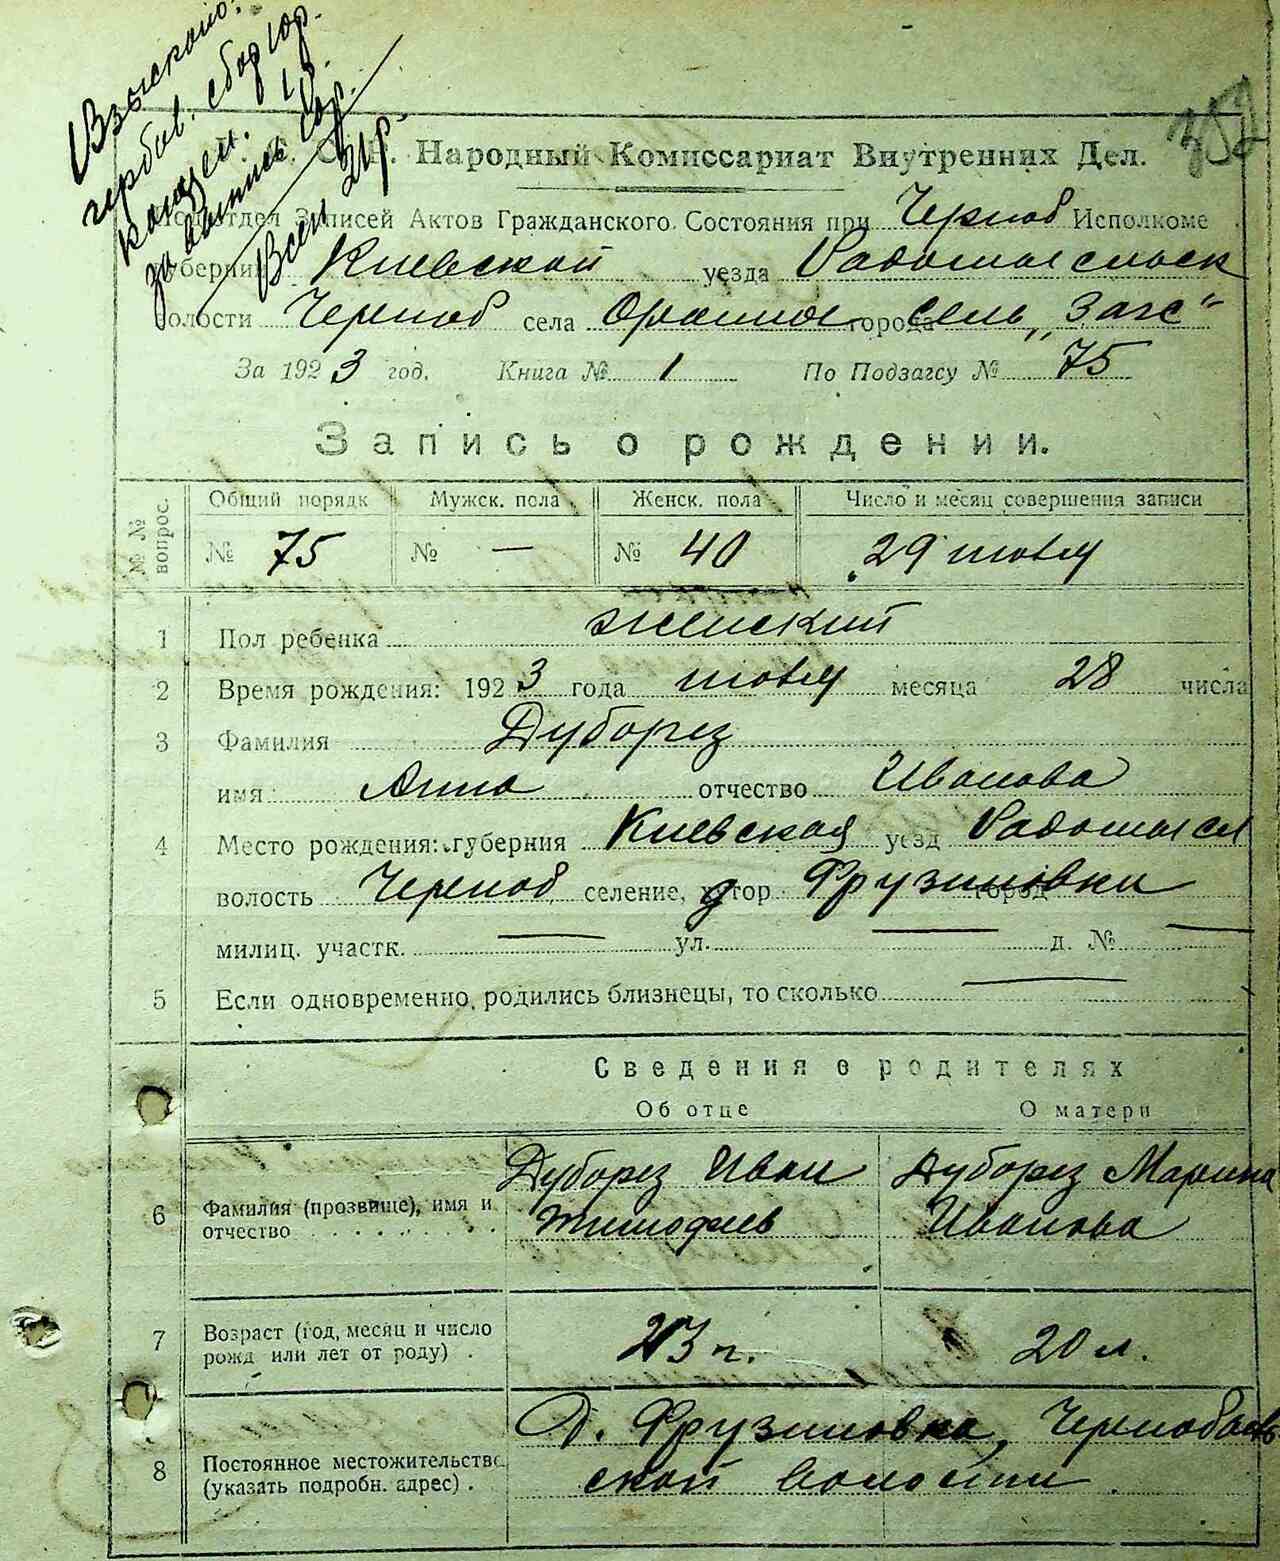 Взыскано:
гербов. сбор 10р.
канцел. 1р.
за запись 10р.
Всего 21р.
352
Р. Народный Комиссариат Внутренних Дел.
Подотдел Записей Актов Гражданского Состояния при Черноб Исполкоме
Губернии Киевской уезда Радомысльск
волости Черноб села Оранное города Сель „Загс“
За 1923 год. Книга № 1 По Подзагсу № 75
Запись о рождении.
№ № вопрос. Общий порядк Мужск. пола Женск. пола Число и месяц совершения записи
№ 75 № — № 40 29 июля
1 Пол ребенка женский
2 Время рождения: 1923 года июля месяца 28 числа
3 Фамилия Дуборез
имя Анна отчество Иванова
4 Место рождения: губерния Киевская уезд Радомысл
волость Черноб селение, хутор д Фрузиновка город
милиц. участк. — ул. — д. № —
5 Если одновременно родились близнецы, то сколько —
Сведения о родителях
Об отце О матери
6 Фамилия (прозвище), имя и отчество Дуборез Иван Тимофеев Дуборез Марина Иванова
7 Возраст (год, месяц и число рожд или лет от роду) . 23 г. 20 л.
8 Постоянное местожительство (указать подробн. адрес) . Д. Фрузиновка, Чернобыльской волости